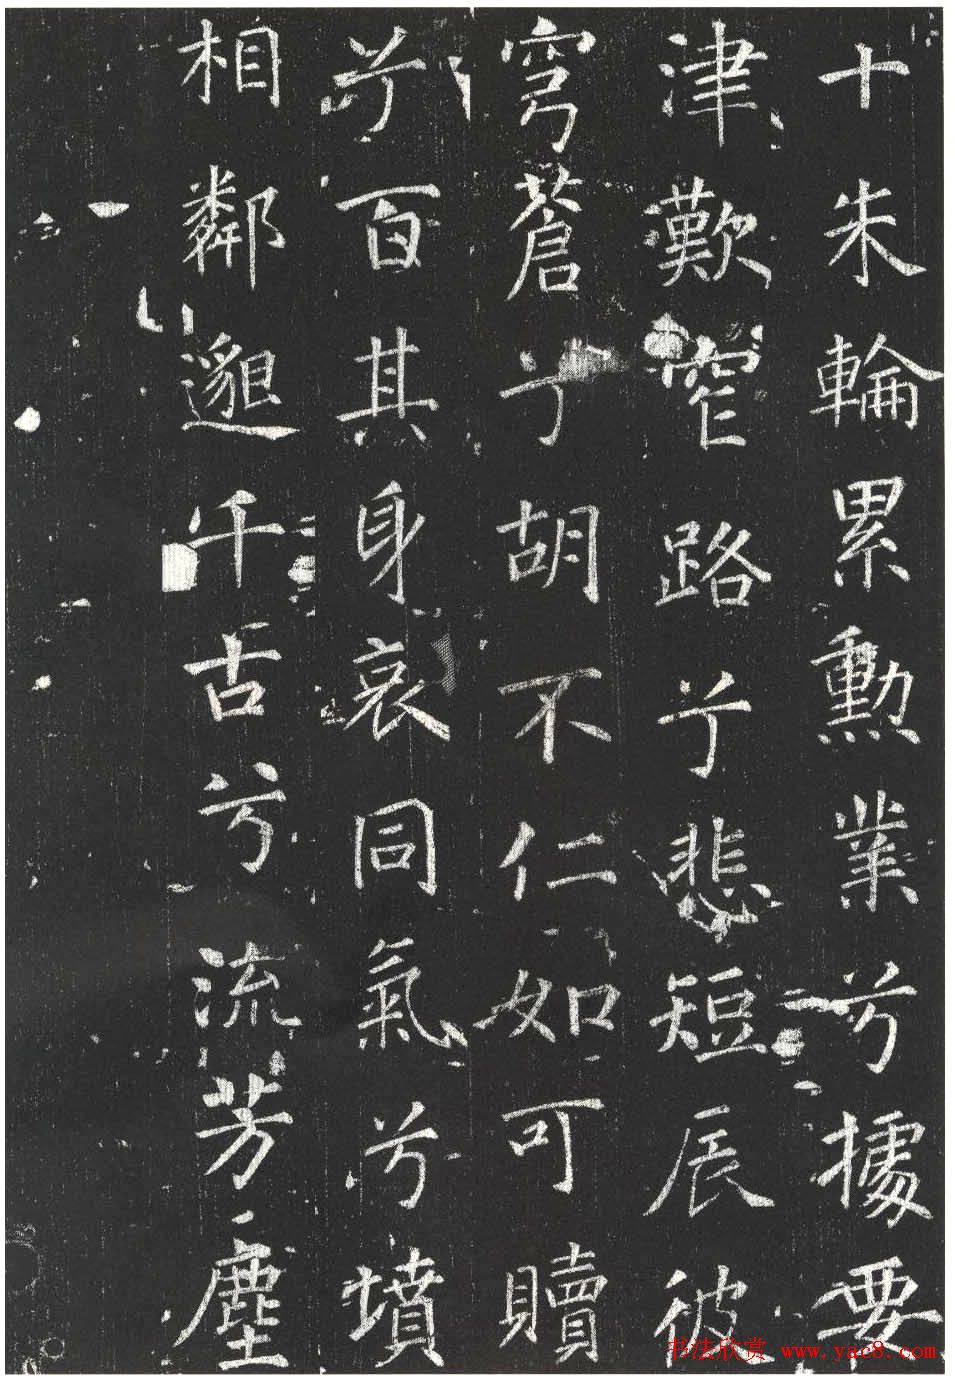 十朱輪累勲業兮據要
津歎窄路兮悲短辰彼
穹蒼兮胡不仁如可贖
兮百其身哀同氣兮墳
相鄰邈千古兮流芳塵
书法欣赏 www.yac8.com